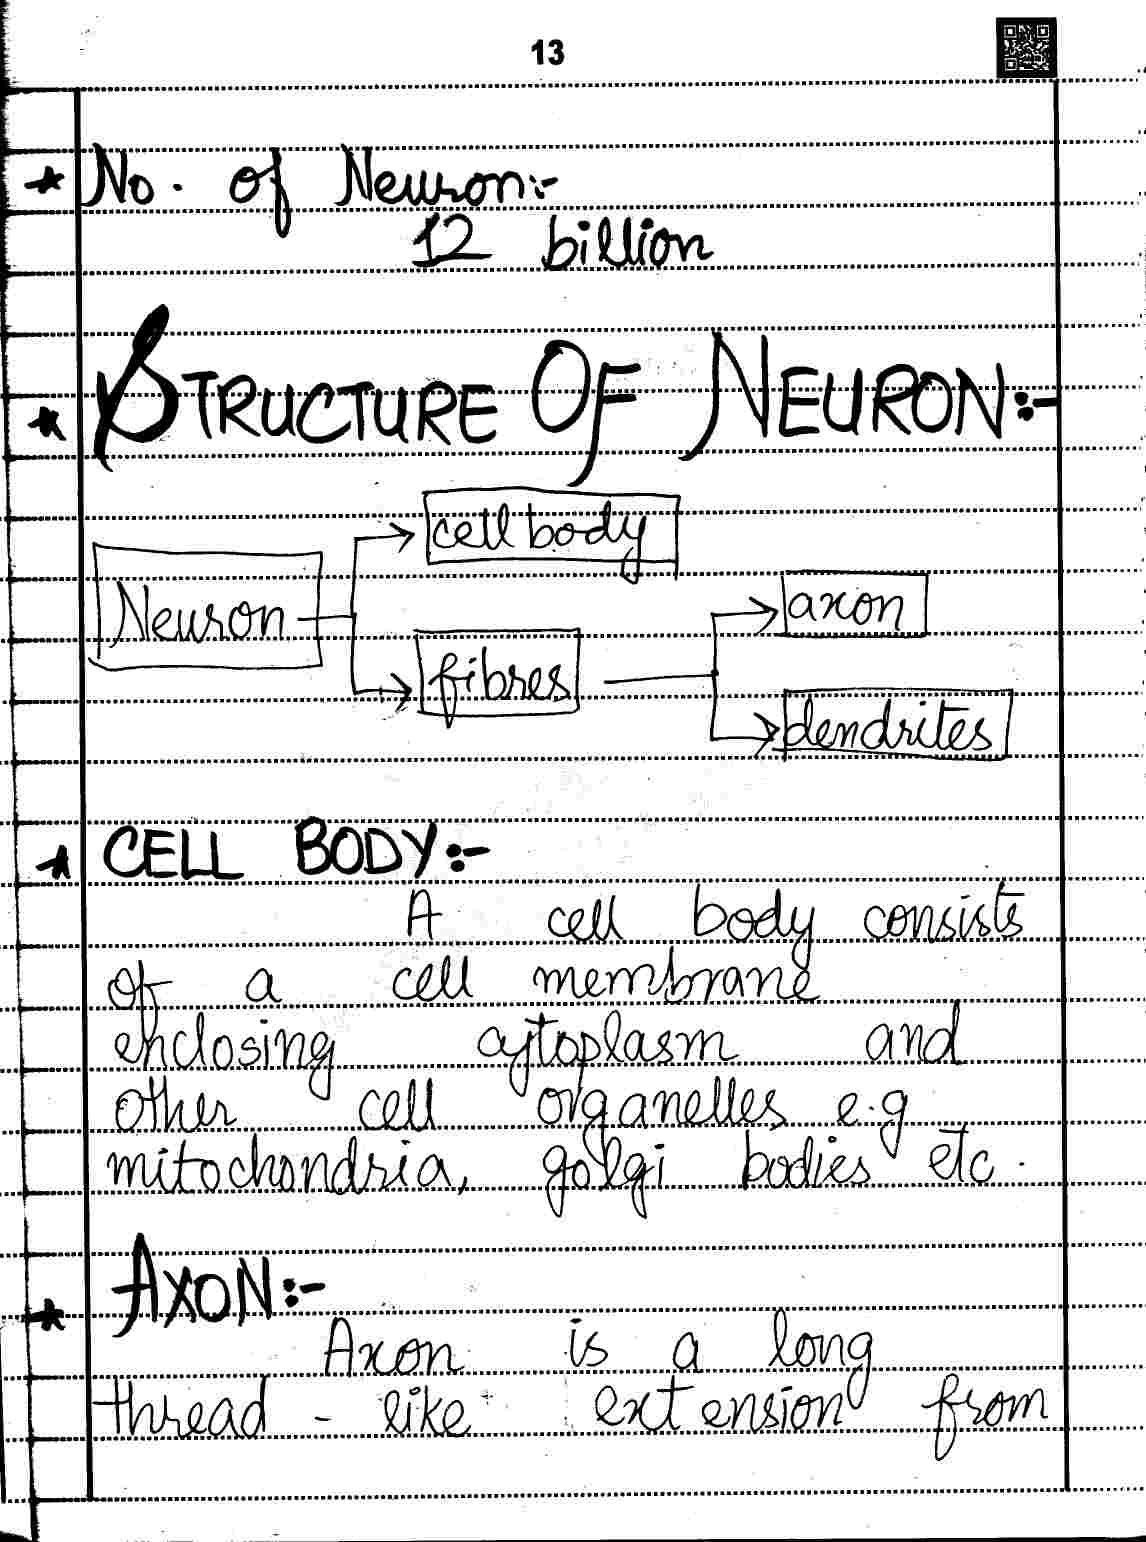 13
No. of Neuron:-
12 billion
STRUCTURE OF NEURON:-
cell body
Neuron
axon
fibres
dendrites
CELL BODY:-
A cell body consists
of a cell membrane
enclosing cytoplasm and
other cell organelles e.g
mitochondria, golgi bodies etc.
AXON:-
Axon is a long
thread - like extension from